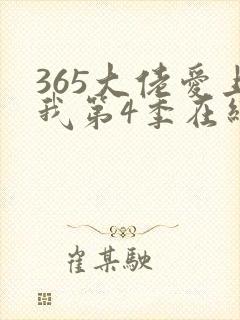 365大佬爱上
我第4季在线
崔某驶